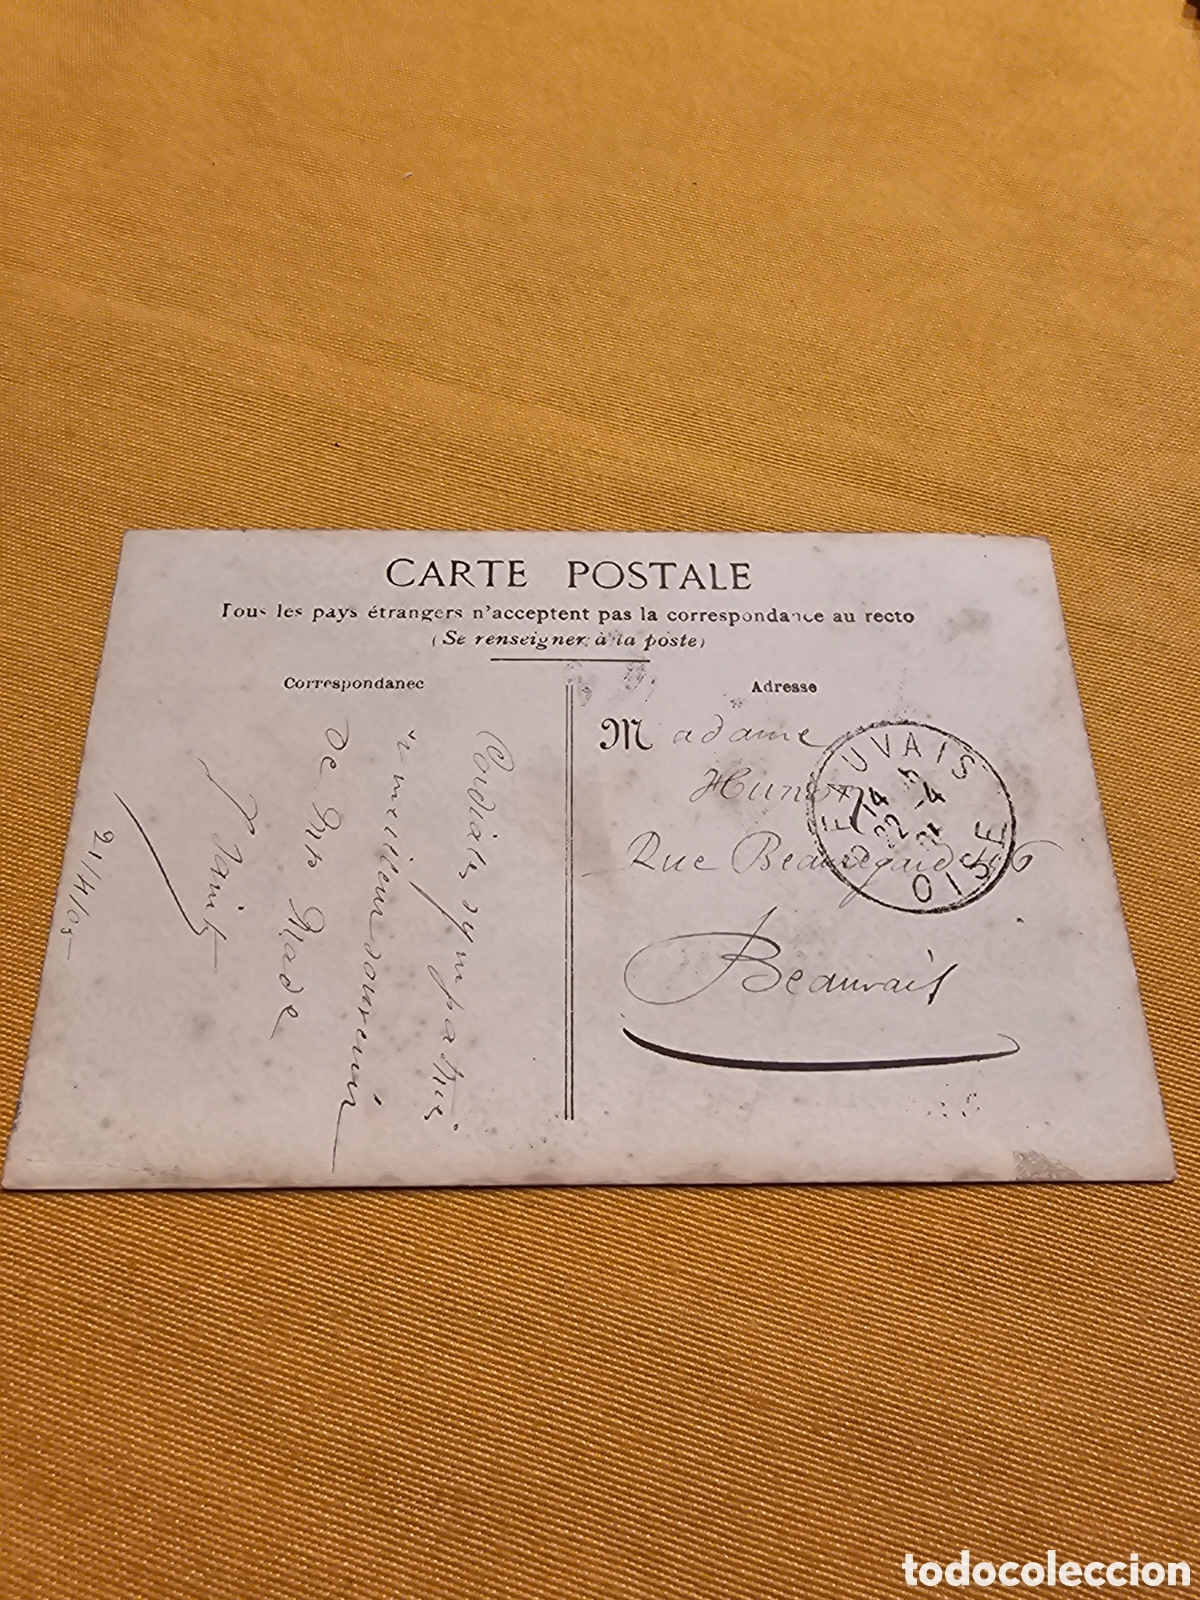 CARTE POSTALE
Tous les pays étrangers n'acceptent pas la correspondance au recto
(Se renseigner à la poste)
Correspondanec
Cordiale sympathie
meilleur souvenir
De
21/4/05
Adresse
Madame
Rue Beauregard 6
Beauvais
BEAUVAIS
14
22 -4
OISE
todocoleccion